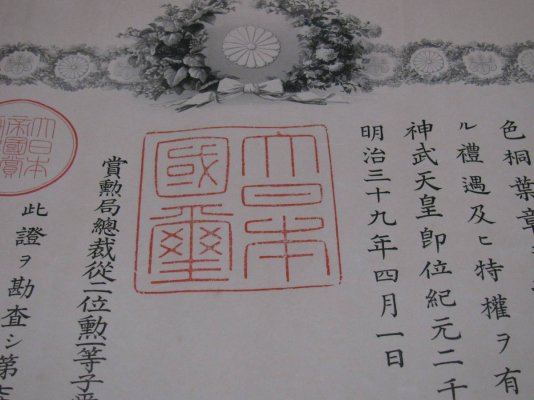 色桐葉章
ル禮遇及ヒ特權ヲ有
神武天皇即位紀元二千
明治三十九年四月一日
大日本
國璽
賞勲局總裁從二位勲一等子
此證ヲ勘査シ第
大日本
帝國賞